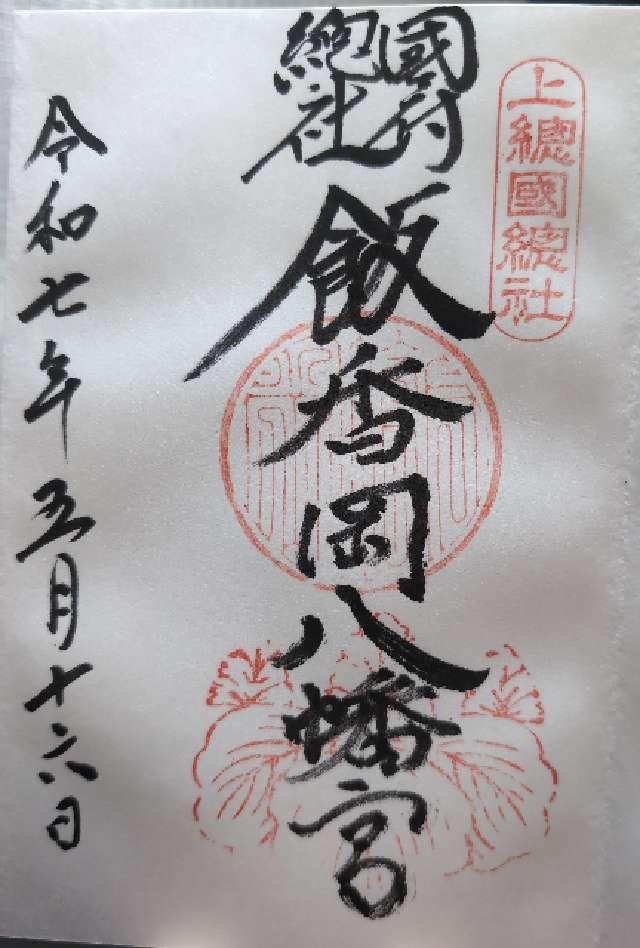 上總國總社
國府
總社
飯香岡八幡宮
令和七年五月十六日